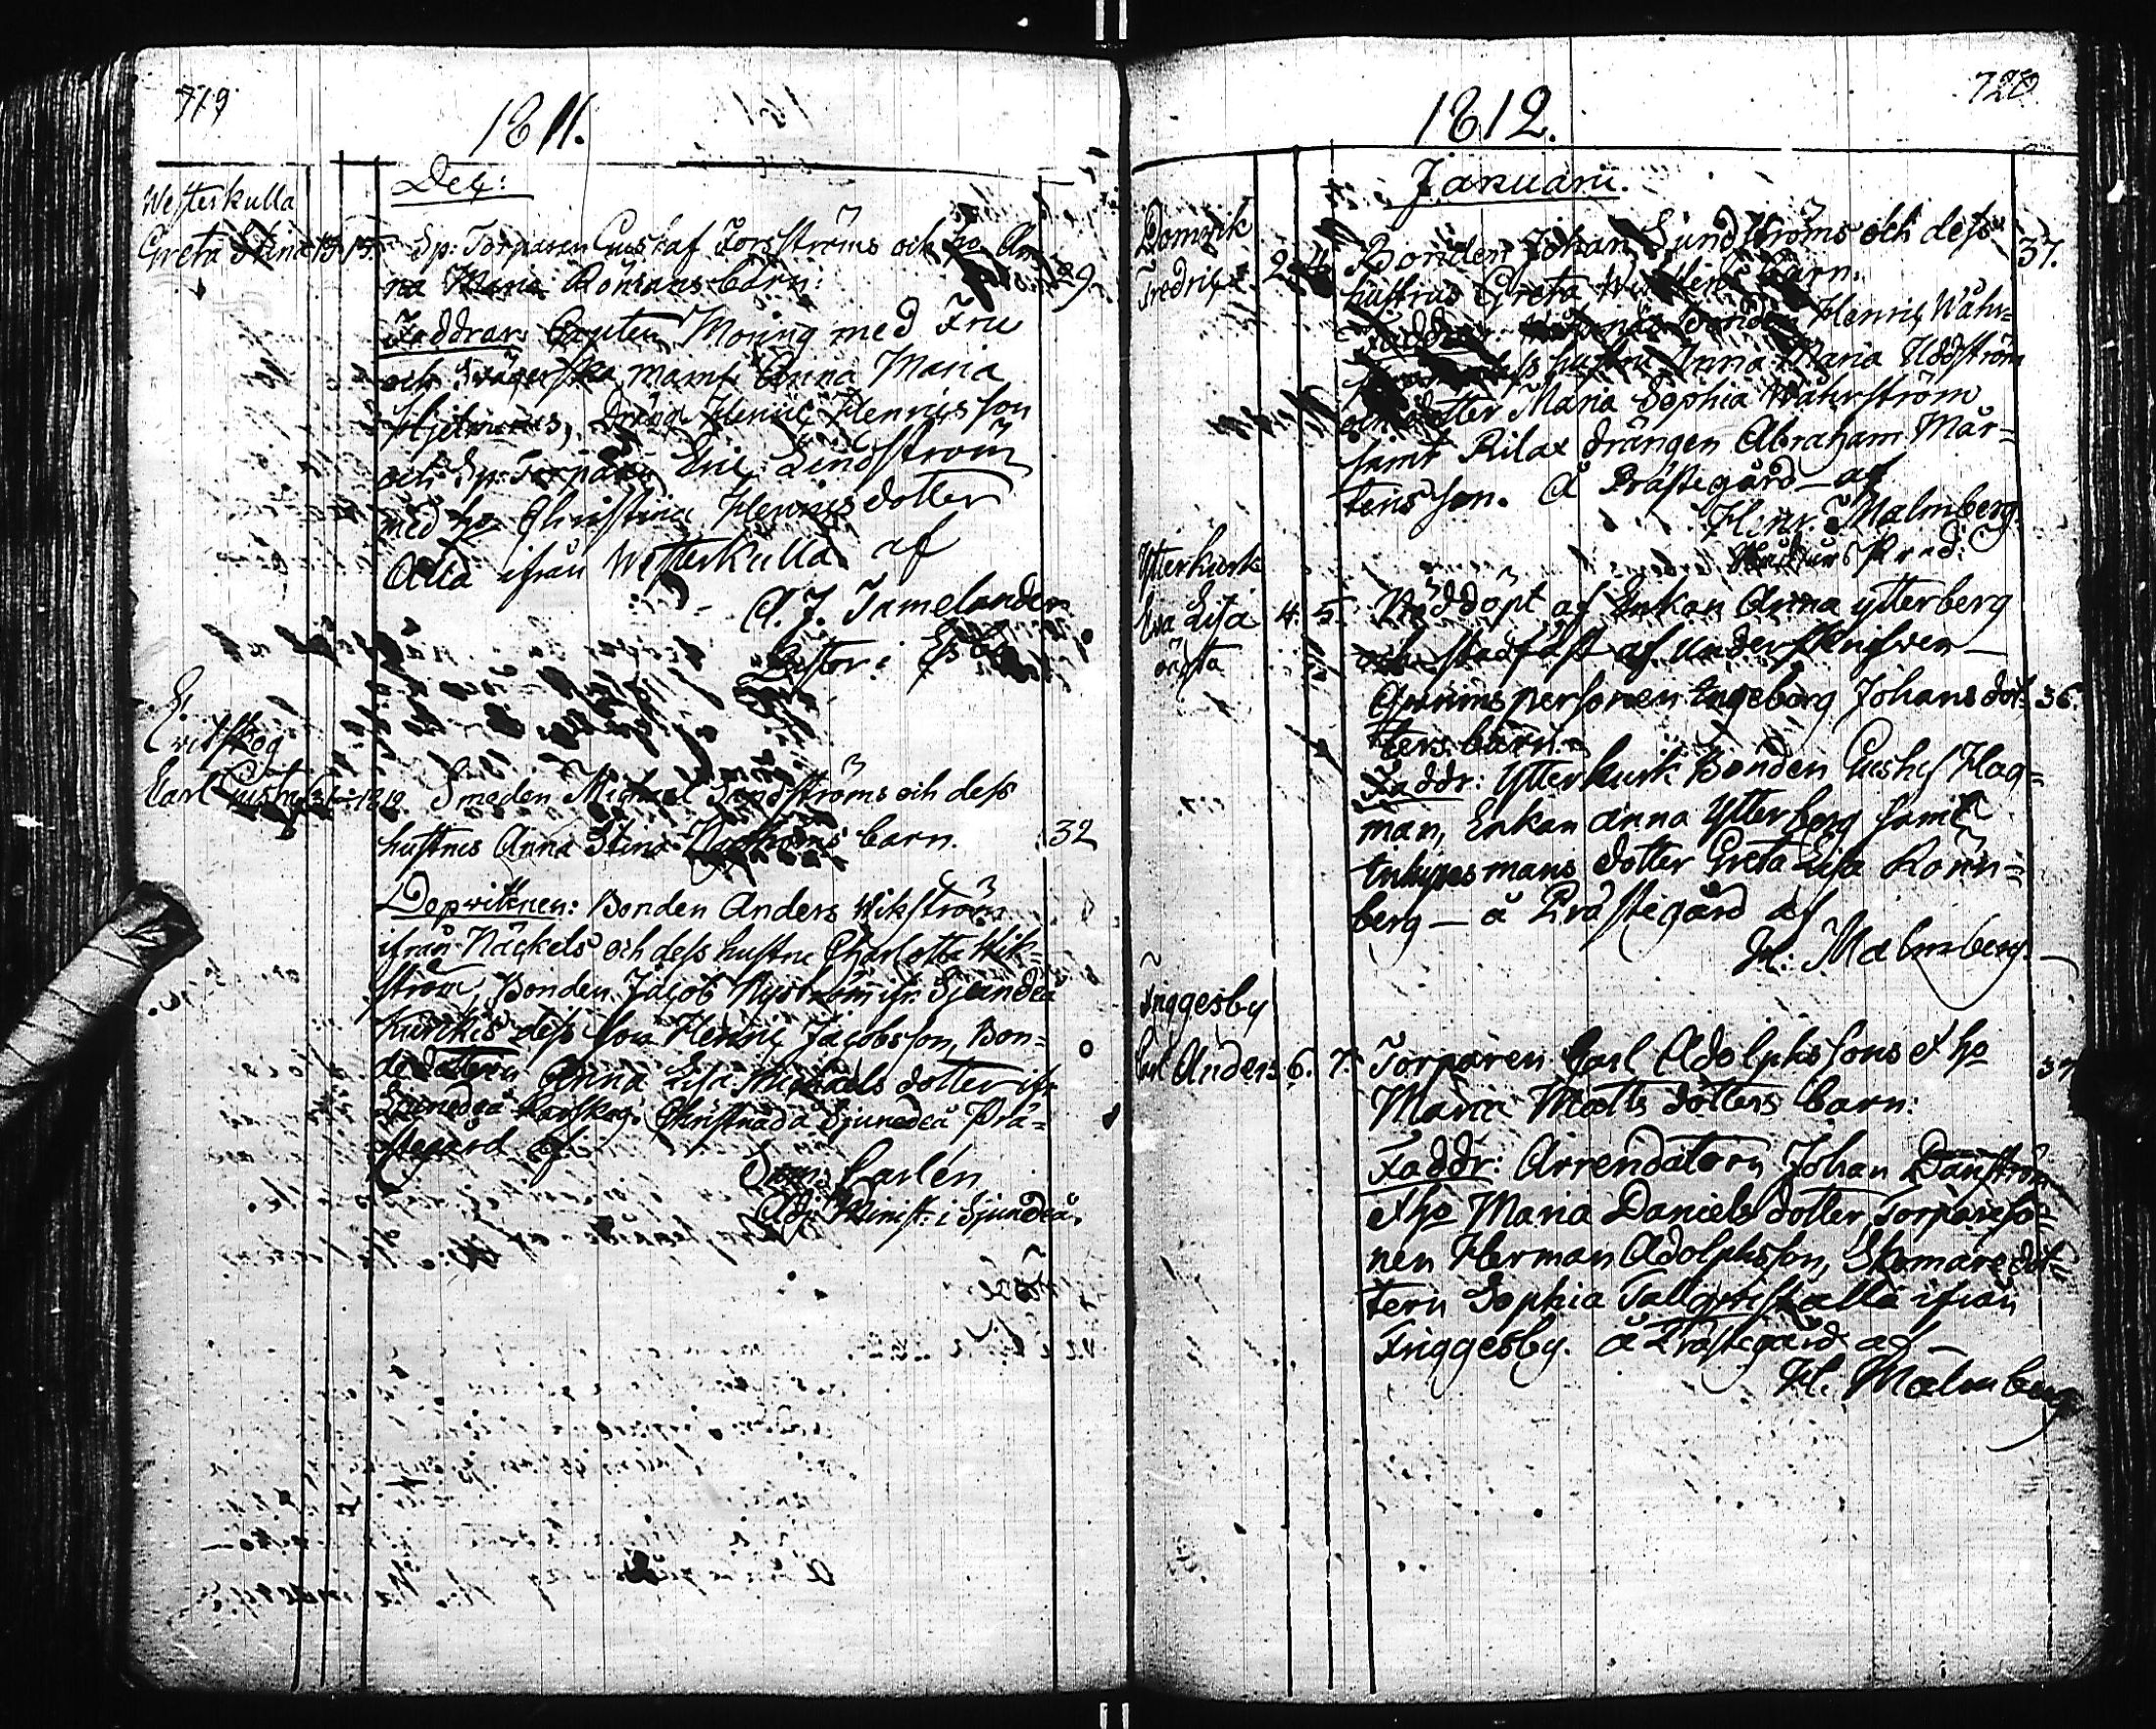 719
1811.
Dec:
Westerkulla
Greta Stina 13. 15. Sp: Torparen Gustaf Forsströms och ho An
na Maria Römans barn: 29.
Faddrar: Capiten Moring med Fru
och Svägerska mams. Anna Maria
Hjelmerus, dräng Henric Henricsson
och Sp: Torparn Eric Lindström
med ho Christina Henricsdotter
Alla ifrån Westerkulla af
A. J. Tamelander
Pastor i Esbo
Evitskog
Carl Gustaf Smeden Michael Sandströms och dess
hustrus Anna Stina barn. 32
Dopvittnen: Bonden Anders Wikström
ifrån Näckels och dess hustru Charlotta Wik-
ström, Bonden Jacob Nyström ifr. Sjundeå
Kurckis dess son Henric Jacobsson, Bon-
dedottern Anna Lisa Michaels dotter ifr
Sjundeå Christnad å Sjundeå Prä-
stegård af
Sam: Carlén
Adj. Minist: i Sjundeå.
720
1812.
Januarii.
Domvik
Fredrica 2. 4. Bonden Johan Sundströms och dess 37.
hustrus Greta barn.
Faddr: bonden Henric Wåhr=
dess hustru Anna Maria Uddström
och dotter Maria Sophia Wåhrström
samt Rilax drängen Abraham Mår=
tensson. Å Prästegård af
Henr: Malmberg.
Ytterkurk
Eva Lisa 4. 5. Nöddöpt af Enkan Anna Ytterberg
oächta och stadfäst af underskrifven
Qvinnspersonen Ingeborg Johansdot= 36.
ters barn.
Faddr: Ytterkurk Bonden Gustaf Hag=
man, Enkan Anna Ytterberg samt
dotter Greta Lisa Rönn=
berg — å Prästegård af
H: Malmberg.
Friggesby
Carl Anders 6. 7. Torparen Carl Adolphssons & ho
Maria Matts dotters barn:
Faddr: Arrendatorn Johan Danström
& ho Maria Daniels dotter, Torpareso=
nen Herman Adolphsson, Skomaredot=
tern Sophia Tallqvist alla ifrån
Friggesby. å Prästegård af
H. Malmberg